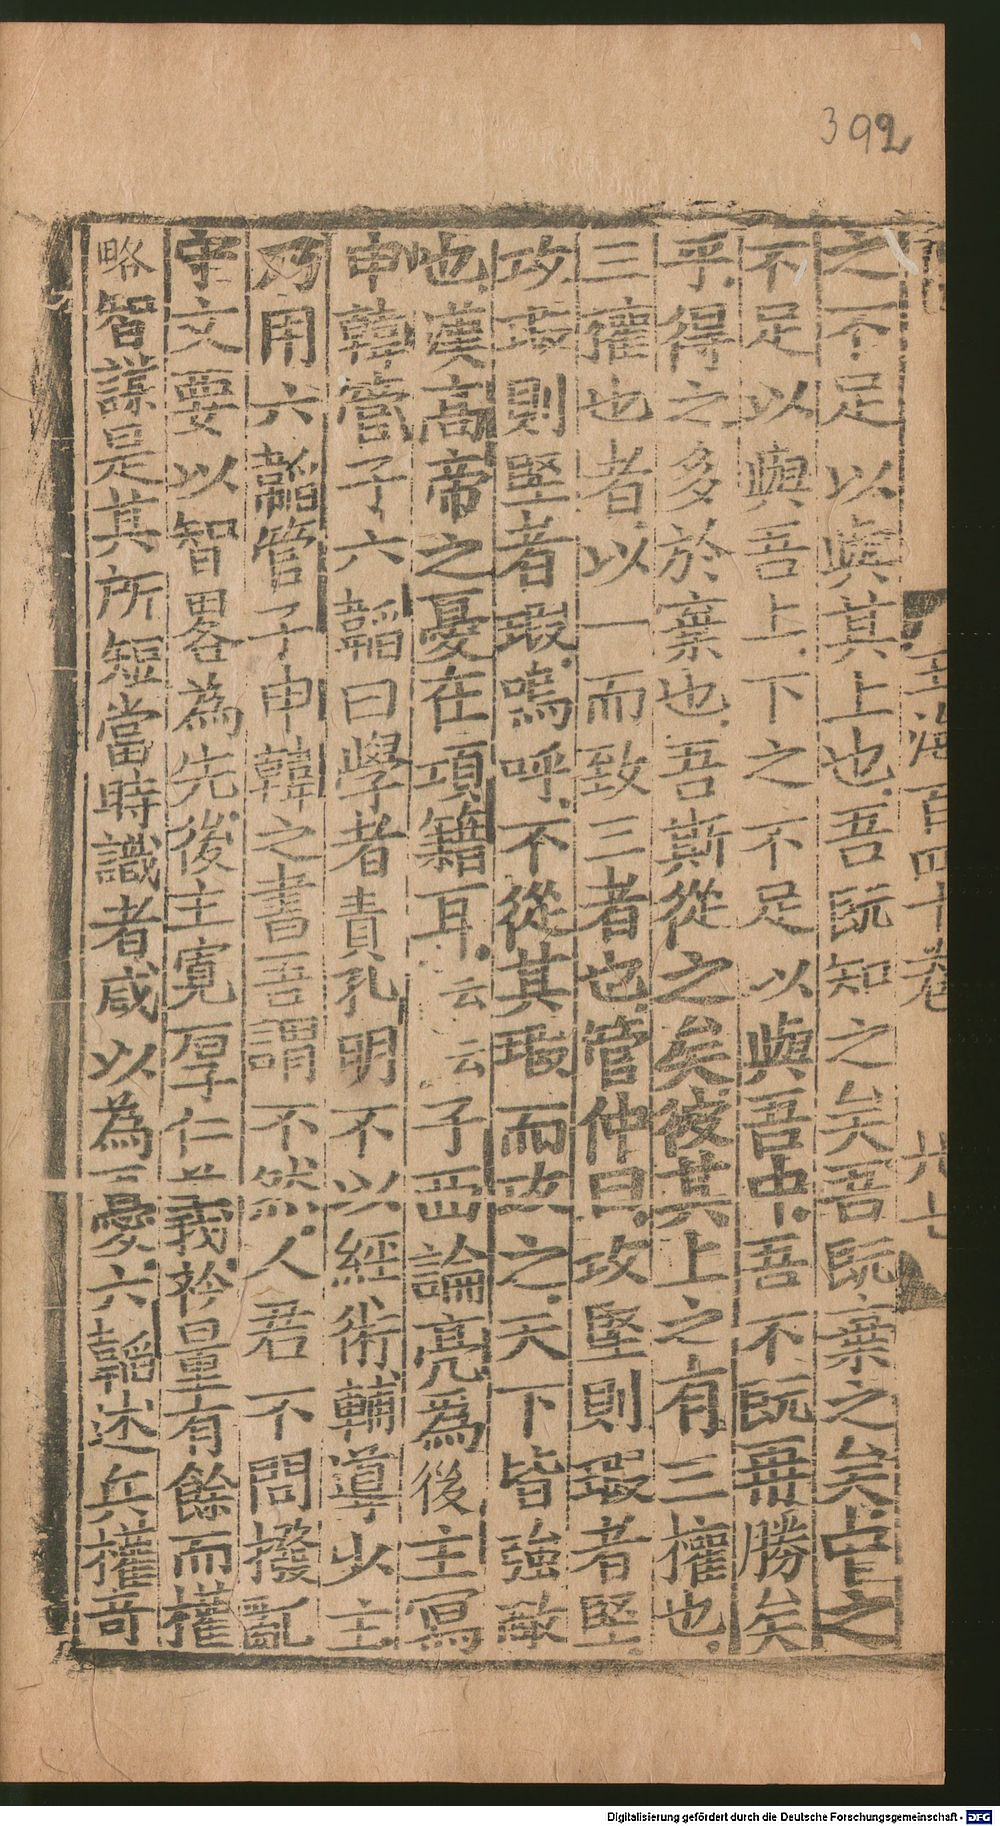 392
玉海百四十卷
之不足以與其上也吾既知之矣吾既棄之矣中之
不足以與吾上下之不足以與吾中吾不既再勝矣
乎得之多於棄也吾斯從之矣彼其上之有三權也
三權也者以一而致三者也管仲曰攻堅則瑕者堅
攻瑕則堅者瑕嗚呼不從其瑕而攻之天下皆強敵
也漢高帝之憂在項籍耳云云子西論亮為後主寫
申韓管子六韜曰學者責孔明不以經術輔導少主
乃用六韜管子申韓之書吾謂不然人君不問撥亂
守文要以智畧為先後主寬厚仁義衿量有餘而權
略智謀是其所短當時識者咸以為憂六韜述兵權奇
Digitalisierung gefördert durch die Deutsche Forschungsgemeinschaft - DFG